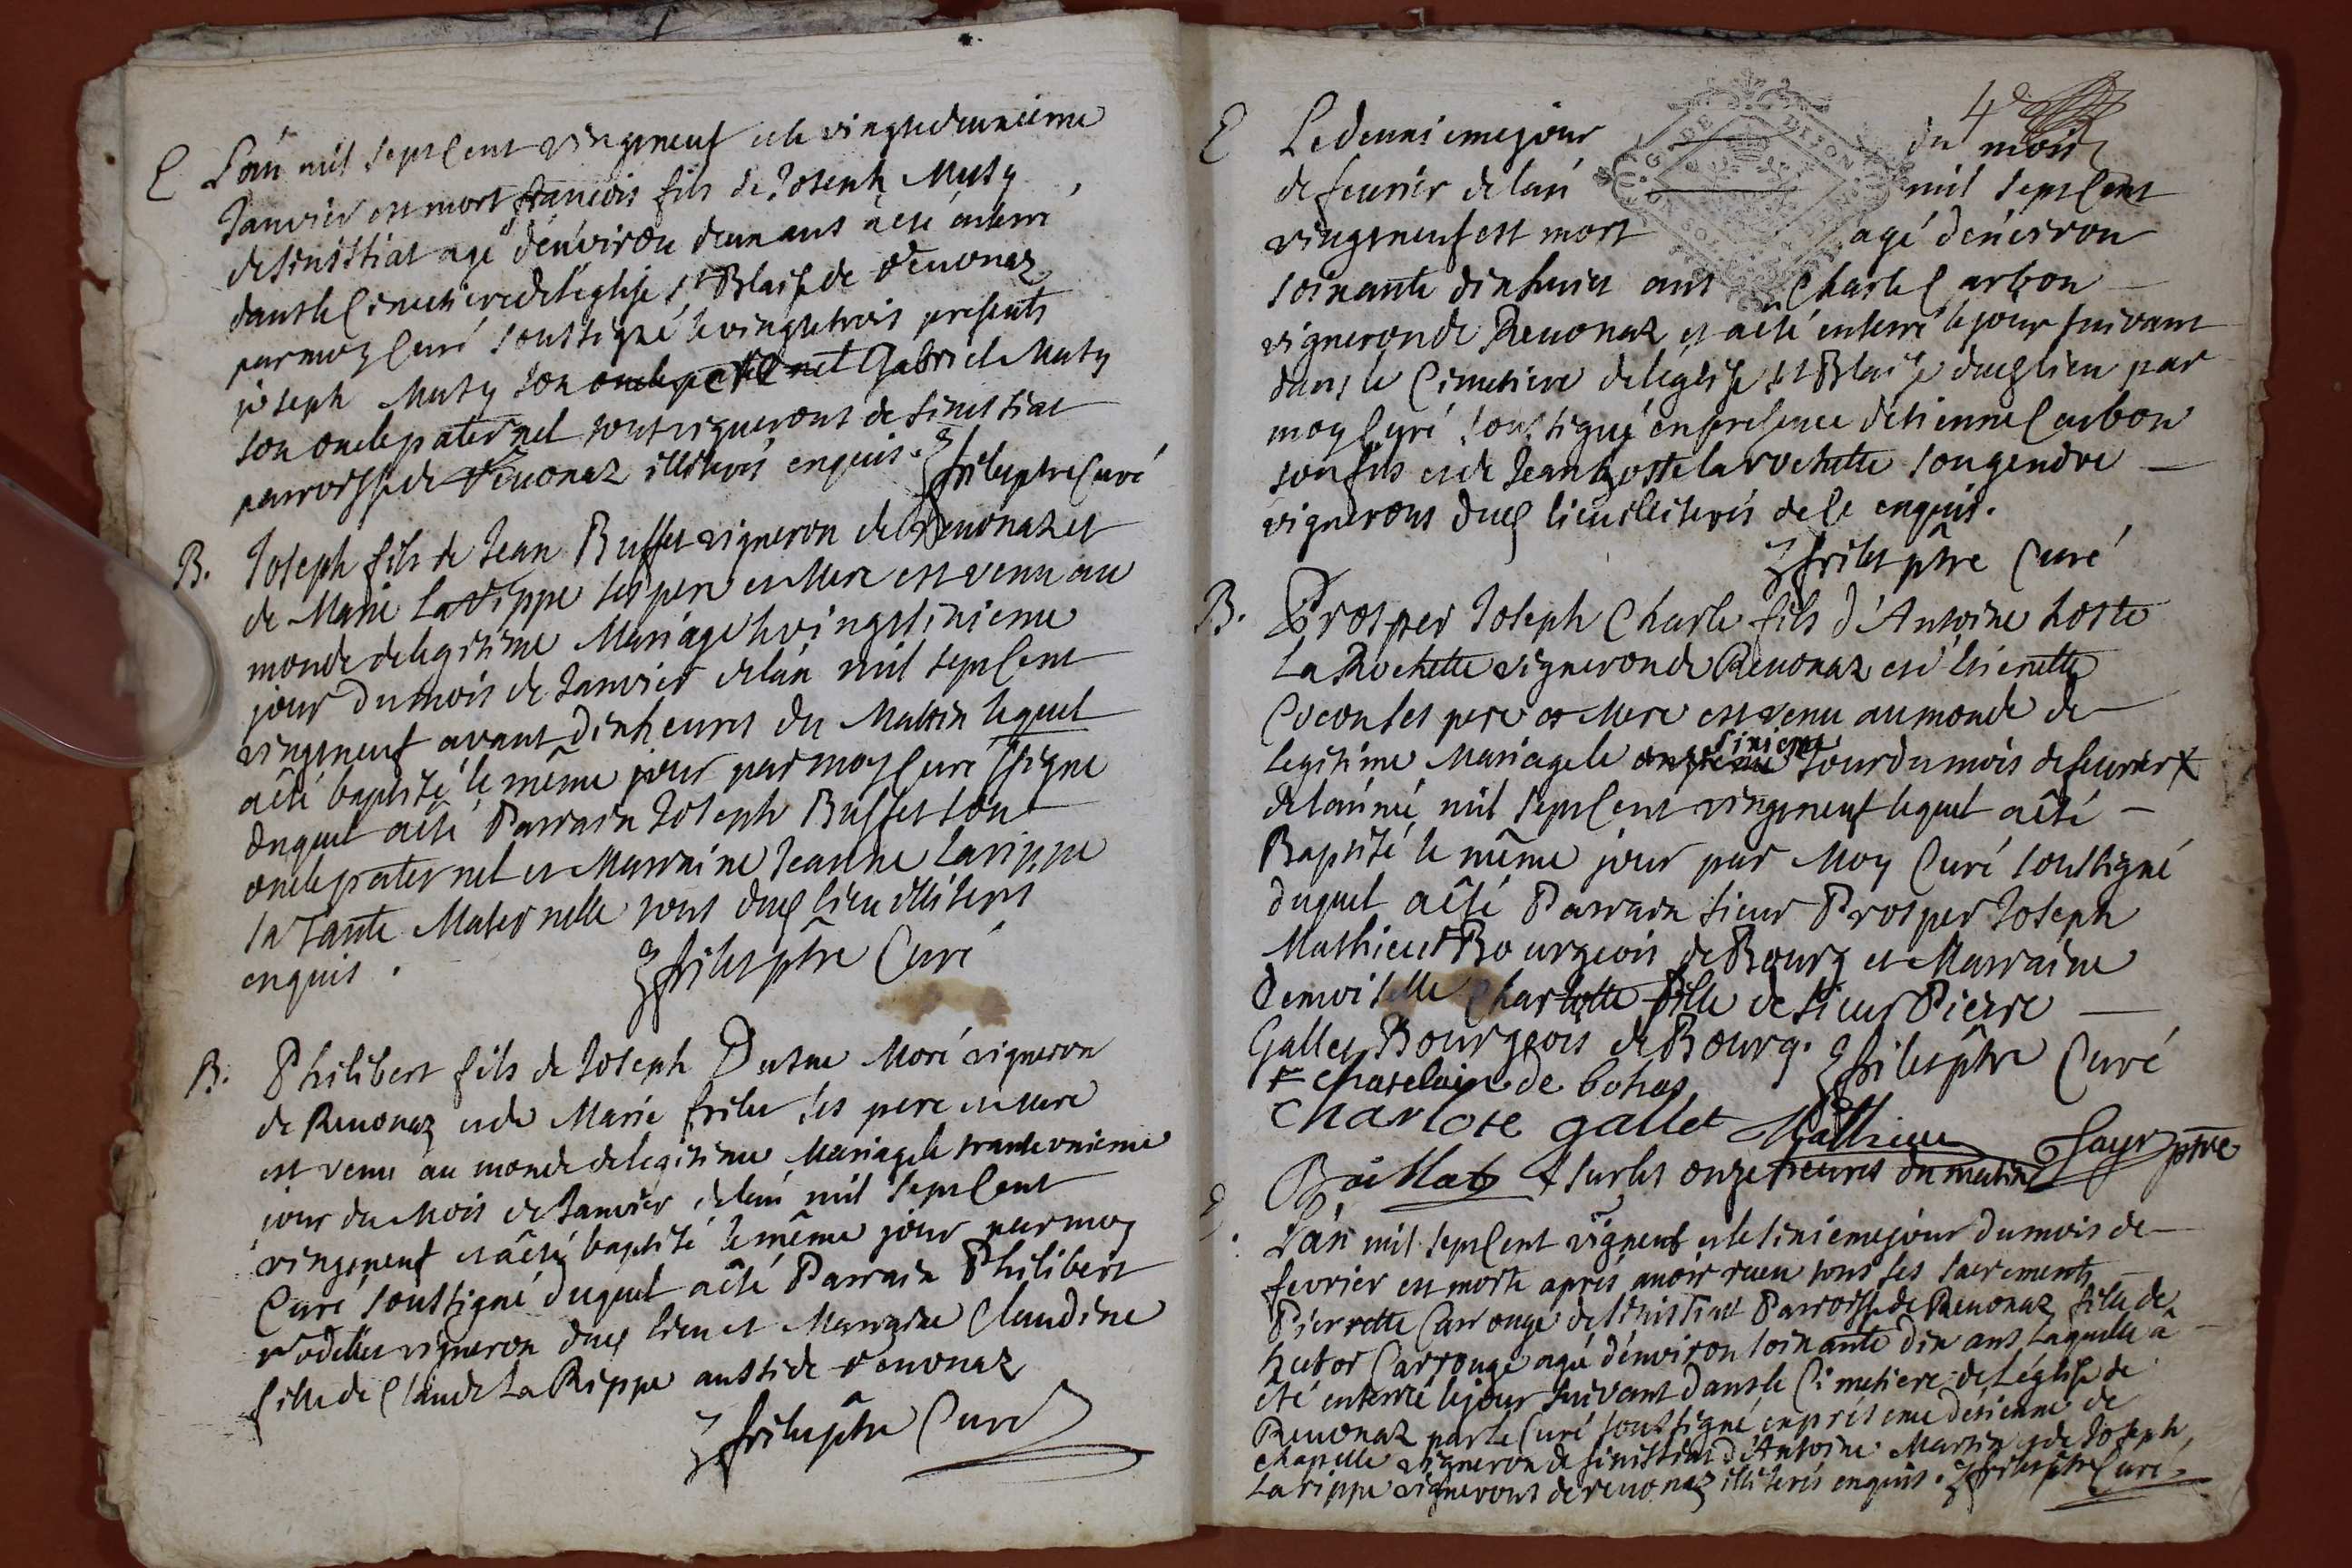 E L'an mil sept Cent vingtneuf et le vingtedeuxieme
Janvier est mort francois fils de Joseph Muty
de sinissiat agé d'environ deux ans a eté enterré
dans le Cimetiere de l'eglise st Blaise de revonaz
par moy Curé soussigné le vingtetrois presents
joseph Muty son et Gabriel Muty
son oncle paternel tous vignerons de sinissiat
parroisse de revonaz illiterés enquis. frilet ptre Curé
B. Joseph fils de Jean Buffet vigneron de Revonaz et
de Marie la Rippe ses pere et Mere est venu au
monde de legitime Mariage le vingtsixieme
jour du mois de Janvier de l'an mil sept Cent
vingtneuf avant dix heures du Mattin lequel
a êté baptisé le même jour par moy Curé ssigné
duquel a êté Parrain Joseph Buffet son
oncle paternel et Marraine Jeanne Larippe
sa Tante Maternelle tous dud lieu illiterés
enquis. frilet ptre Curé
B. Philibert fils de Joseph Moré vigneron
de Revonaz et de Marie frilet ses pere et Mere
est venu au monde de legitime Mariage le tranteunieme
jour du Mois de Janvier de l'an mil sept Cent
vingtneuf et a êté baptisé le même jour par moy
Curé soussigné duquel a êté Parrain Philibert
vigneron dud lieu et Marraine Claudine
fille de Claude La Rippe aussi de revonaz
frilet ptre Curé
4e
E Le deuxieme jour du mois
de feuvrier de l'an mil sept Cent
vingtneuf est mort agé d'environ
soixante dix huict ans Charle Carbon
vigneron de Revonaz et a êté enterré le jour suivant
dans le Cimetiere de l'eglise st Blaise dud lieu par
moy Curé soussigné en presence d'etienne Carbon
son fils et de Jean hoste larochette son gendre
vignerons dud lieu illiterés de ce enquis.
frilet ptre Curé
B. Prosper Joseph Charle fils d'Antoine hoste
La Rochette vigneron de Revonaz et d'Etienette
Cocon ses pere et Mere est venu au monde de
legitime Mariage le sixieme Jour du mois de feuvrier +
de l'année mil sept Cent vingtneuf lequel a êté
Baptisé le même jour par Moy Curé soussigné
duquel a êté Parrain sieur Prosper Joseph
Mathieu Bourgeois de Bourg et Marraine
Demoiselle Charlotte fille de sieur Pierre
Gallet Bourgeois de Bourg. frilet ptre Curé
chatelain de bohas
charlote gallet Mathieu
ptre
+ sur les onze heures du matin
L'an mil sept Cent vigneuf et le sixieme jour du mois de
fevrier est morte aprés avoir receu tous ses sacrements
Pierrette Carrouge de sinissiat Parroisse de Revonaz fille de
hector Carrouge agé d'environ soixante dix ans Laquelle a
été enterré le jour suivant dans le Cimetiere de L'église de
Revonaz par le Curé soussigné en présence d'etienne de
chapelle vigneron de sinissiat d'Antoine Martin et de Joseph
Larippe vignerons de revonaz illiterés enquis. frilet ptre Curé